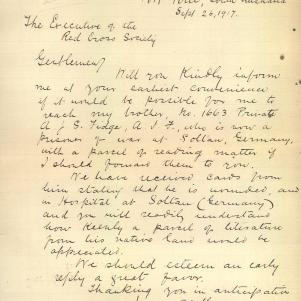 South Australia
Sept 26, 1917.
The Executive of the
Red Cross Society
Gentlemen
Will you kindly inform
me at your earliest convenience
if it would be possible for me to
reach my brother, No. 1663 Private
A J S Fidge, A.I.F., who is now a
prisoner of war at Soltau, Germany,
with a parcel of reading matter if
I should forward them to you.
We have received cards from
him stating that he is wounded, and
in Hospital at Soltau (Germany)
and you will readily understand
how keenly a parcel of literature
from his native land would be
appreciated.
We should esteem an early
reply a great favor.
Thanking you in anticipation